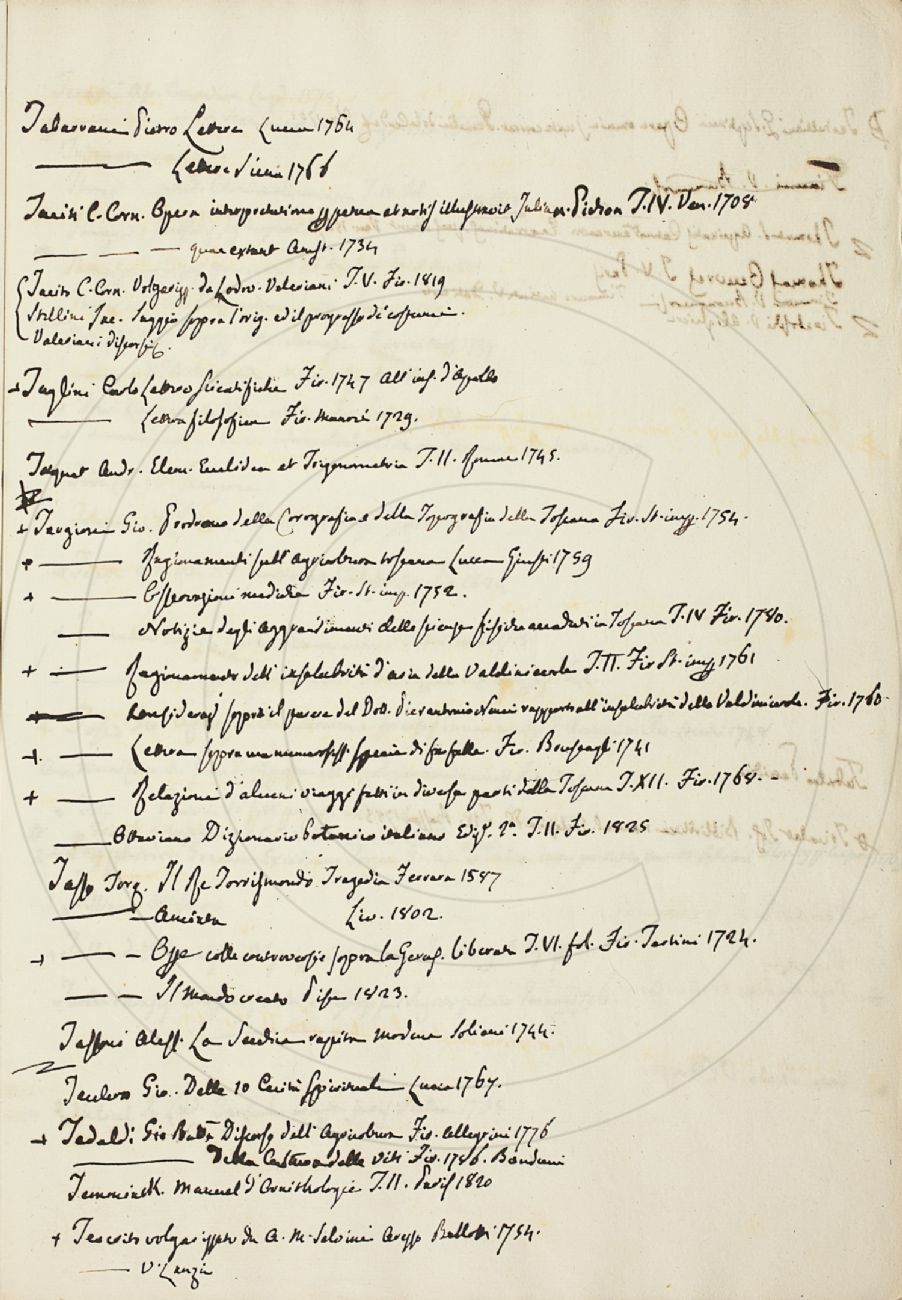 Tabarrani Pietro Lettera Lucca 1764
——— Lettera Siena 1766
Taciti C. Corn. Opera interpretatione perpetua et notis illustravit Julian. Pichon T. IV. Ven. 1708
— — — quae extant Amst. 1734
Tacito C. Corn. Volgarizz. da Lodov. Valeriani T. V. Fir. 1819
Stellini Jac. Saggio sopra l'orig. ed il progresso de' costumi.
Valeriani discorsi.
+ Taglini Carlo Lettere scientifiche Fir. 1747 All'ins. d'Apollo
——— Lettera filosofica Fir. Manni 1729.
Taquet Andr. Elem. Euclidea et Trigonometria T. II. Romae 1745.
+ Targioni Gio. Prodromo della Corografia e della Topografia della Toscana Fir. St. imp. 1754.
+ ——— Ragionamenti sull'Agricoltura toscana Lucca Giusti 1759
+ ——— Osservazioni mediche Fir. St. imp. 1752.
——— Notizie degli Aggrandimenti delle scienze fisiche accaduti in Toscana T. IV Fir. 1780.
+ ——— Ragionamento dell'insalubrità d'aria della Valdinievole T. II. Fir St. imp 1761
——— Consideraz. sopra il parere del Dott. Pierantonio Nucci rapporto all'insalubrità della Valdinievole. Fir. 1760
+ ——— Lettera sopra una numerosiss. specie di farfalle. Fir. 1741
+ ——— Relazioni d'alcuni viaggi fatti in diverse parti della Toscana T. XII. Fir. 1768.
——— Ottaviano Dizionario botanico italiano Ediz. 2ª. T. II. Fir. 1825
Tasso Torq. Il Re Torrismondo Tragedia Ferrara 1587
——— Aminta Liv. 1802.
+ ——— Opere colle controversie sopra la Gerus. liberata T. VI. fol. Fir. Tartini 1724.
——— Il Mondo creato Pisa 1823.
Tassoni Aless. La Secchia rapita Modena Soliani 1744.
Taulero Gio. Delle 10 Cecità spirituali Lucca 1767.
+ Tedaldi Gio Batta Discorso dell'Agricoltura Fir. Allegrini 1776
——— Della Coltura delle viti Fir. 1786.
Temminck. Manuel d'Ornithologie T. II. Paris 1820
+ Teocrito volgarizzato da A. M. Salvini Arezzo Bellotti 1754.
——— V. Lanzi